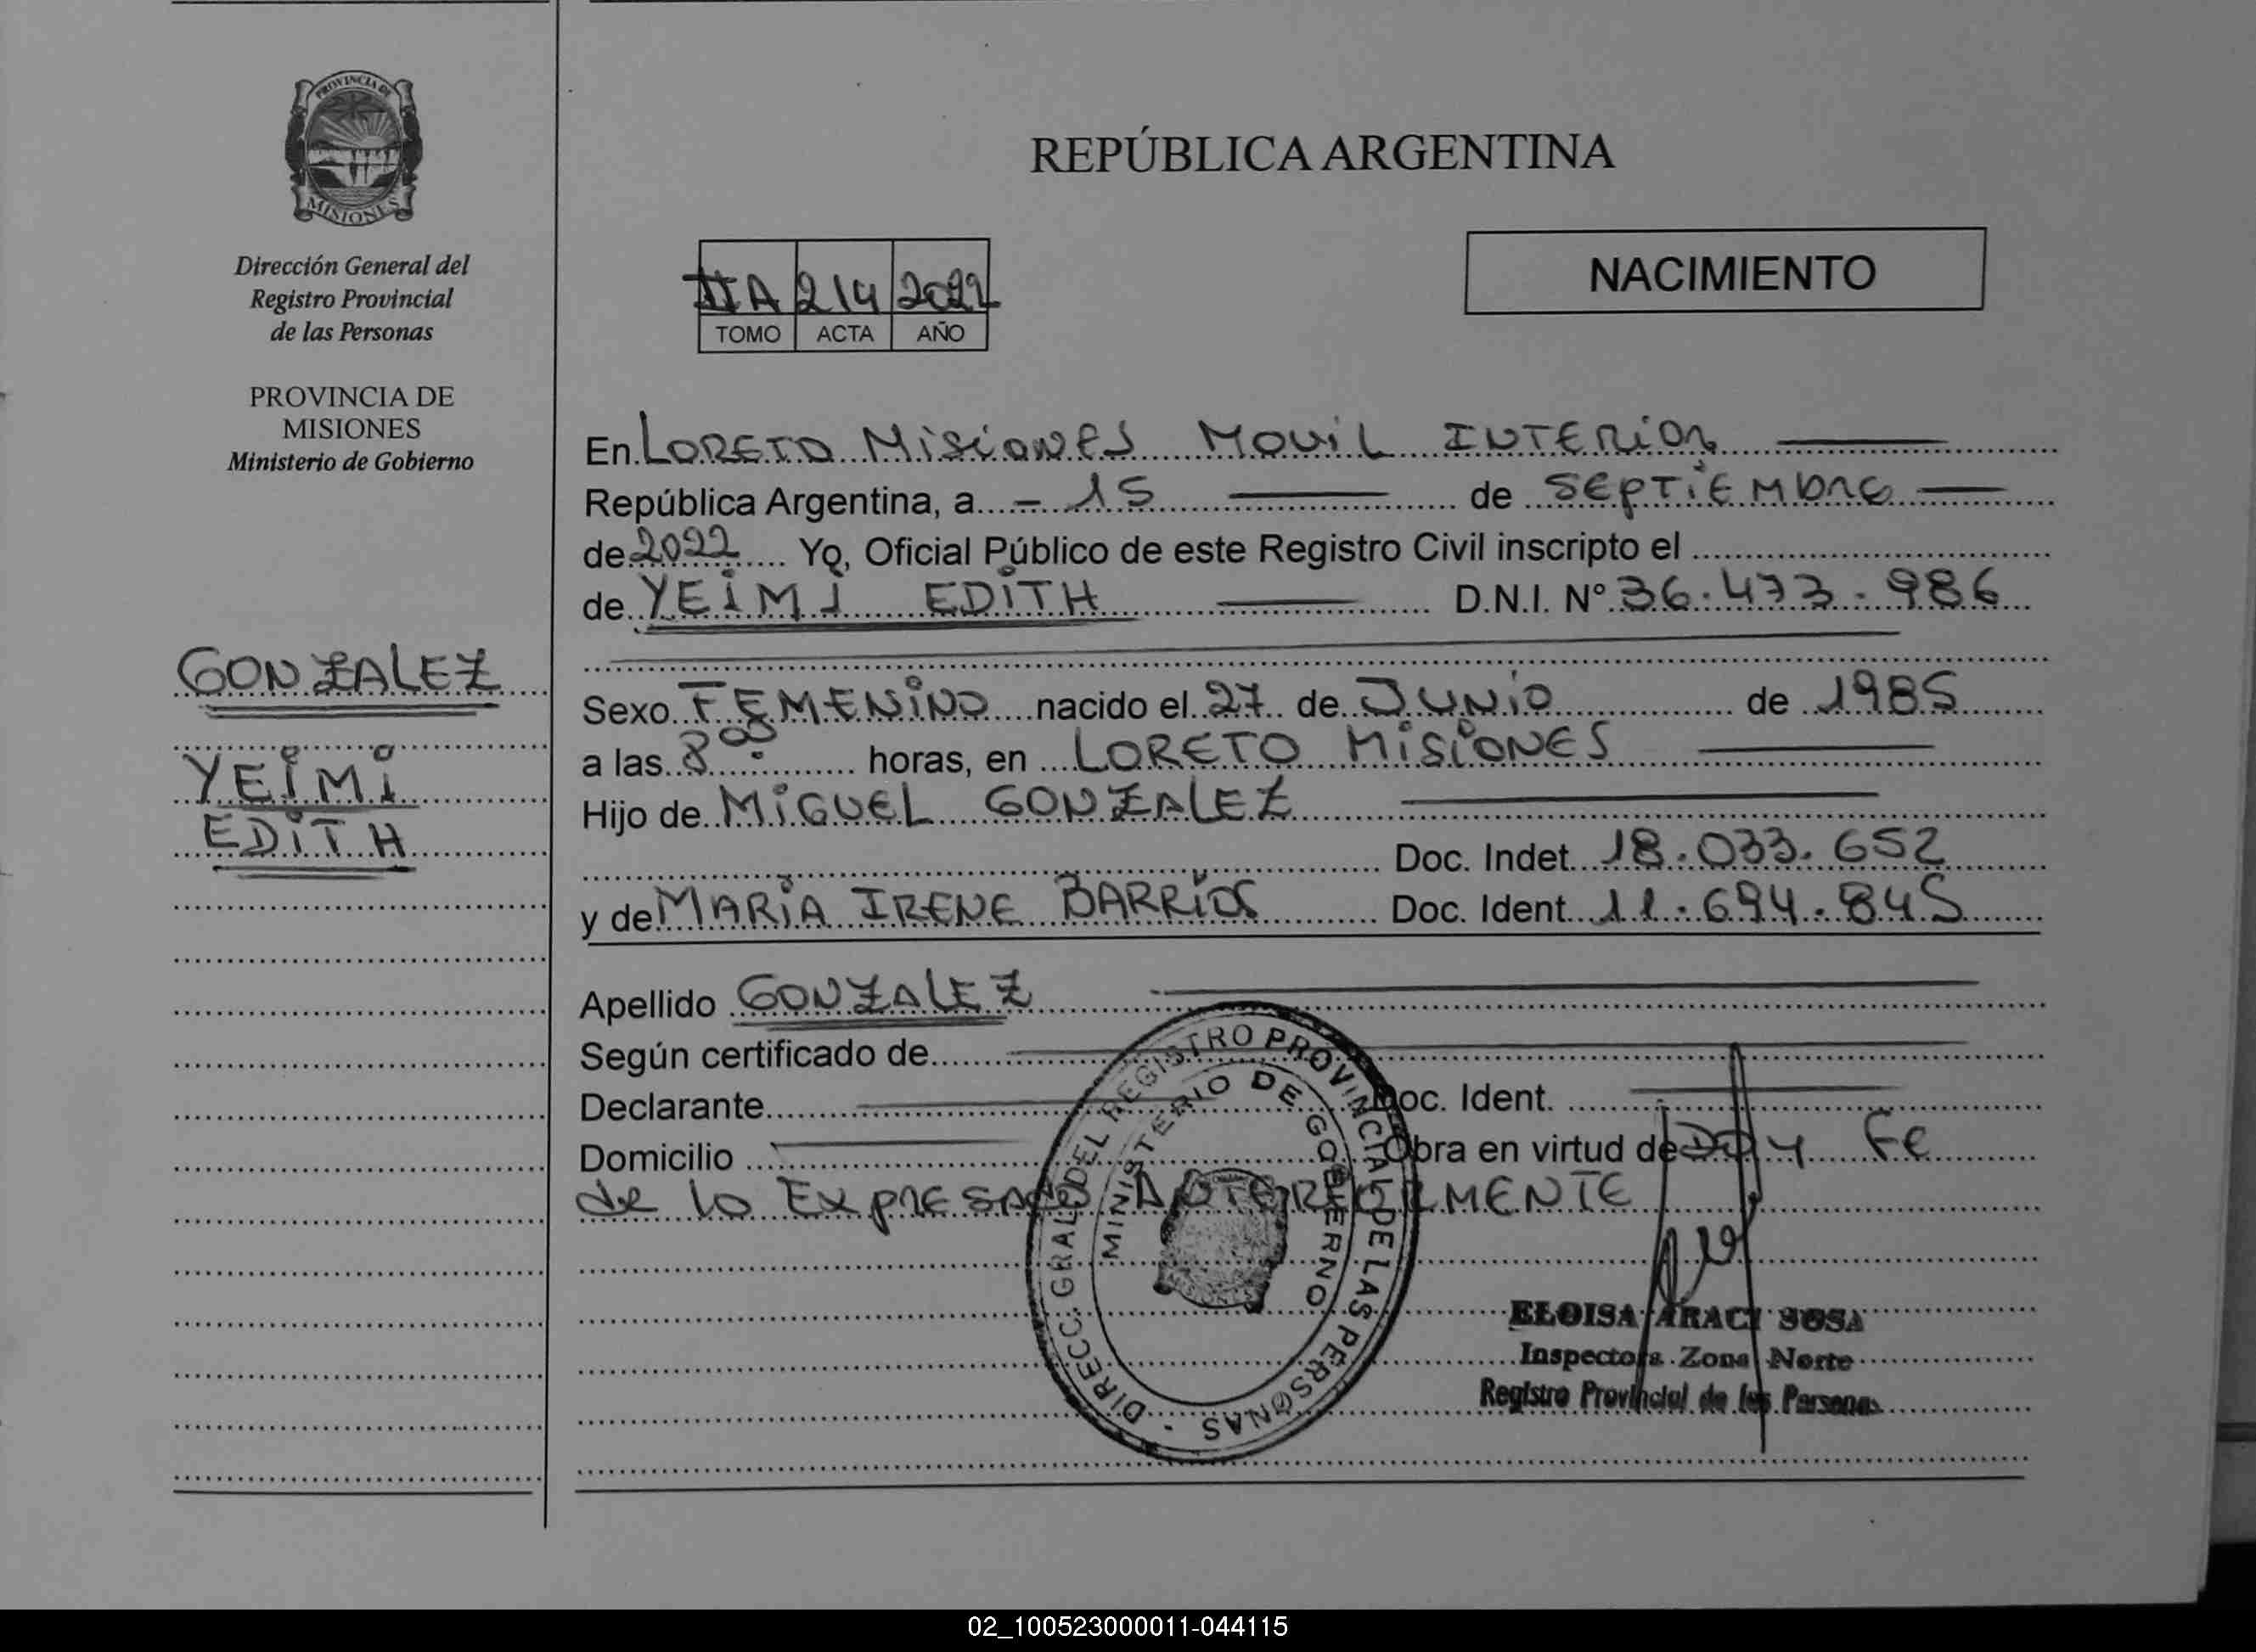 PROVINCIA DE
MISIONES
Dirección General del
Registro Provincial
de las Personas
PROVINCIA DE
MISIONES
Ministerio de Gobierno
GONZALEZ
YEIMI
EDITH
REPÚBLICA ARGENTINA
NACIMIENTO
IIA 214 2022
TOMO ACTA AÑO
En LORETO MISIONES MOVIL INTERIOR
República Argentina, a - 15 de SEPTIEMBRE
de 2022 Yo, Oficial Público de este Registro Civil inscripto el
de YEIMI EDITH D.N.I. N° 36.473.986
Sexo FEMENINO nacido el 27 de JUNIO de 1985
a las 8 00 horas, en LORETO MISIONES
Hijo de MIGUEL GONZALEZ
Doc. Indet. 18.033.652
y de MARIA IRENE BARRIOS Doc. Ident. 11.694.845
Apellido GONZALEZ
Según certificado de
Declarante Doc. Ident.
Domicilio Obra en virtud de DOY FE
de lo EXPRESADO ANTERIORMENTE
DIRECC. GRAL. DEL REGISTRO PROVINCIAL DE LAS PERSONAS
MINISTERIO DE GOBIERNO
ELOISA ARACI SOSA
Inspectora Zona Norte
Registro Provincial de las Personas
02_100523000011-044115